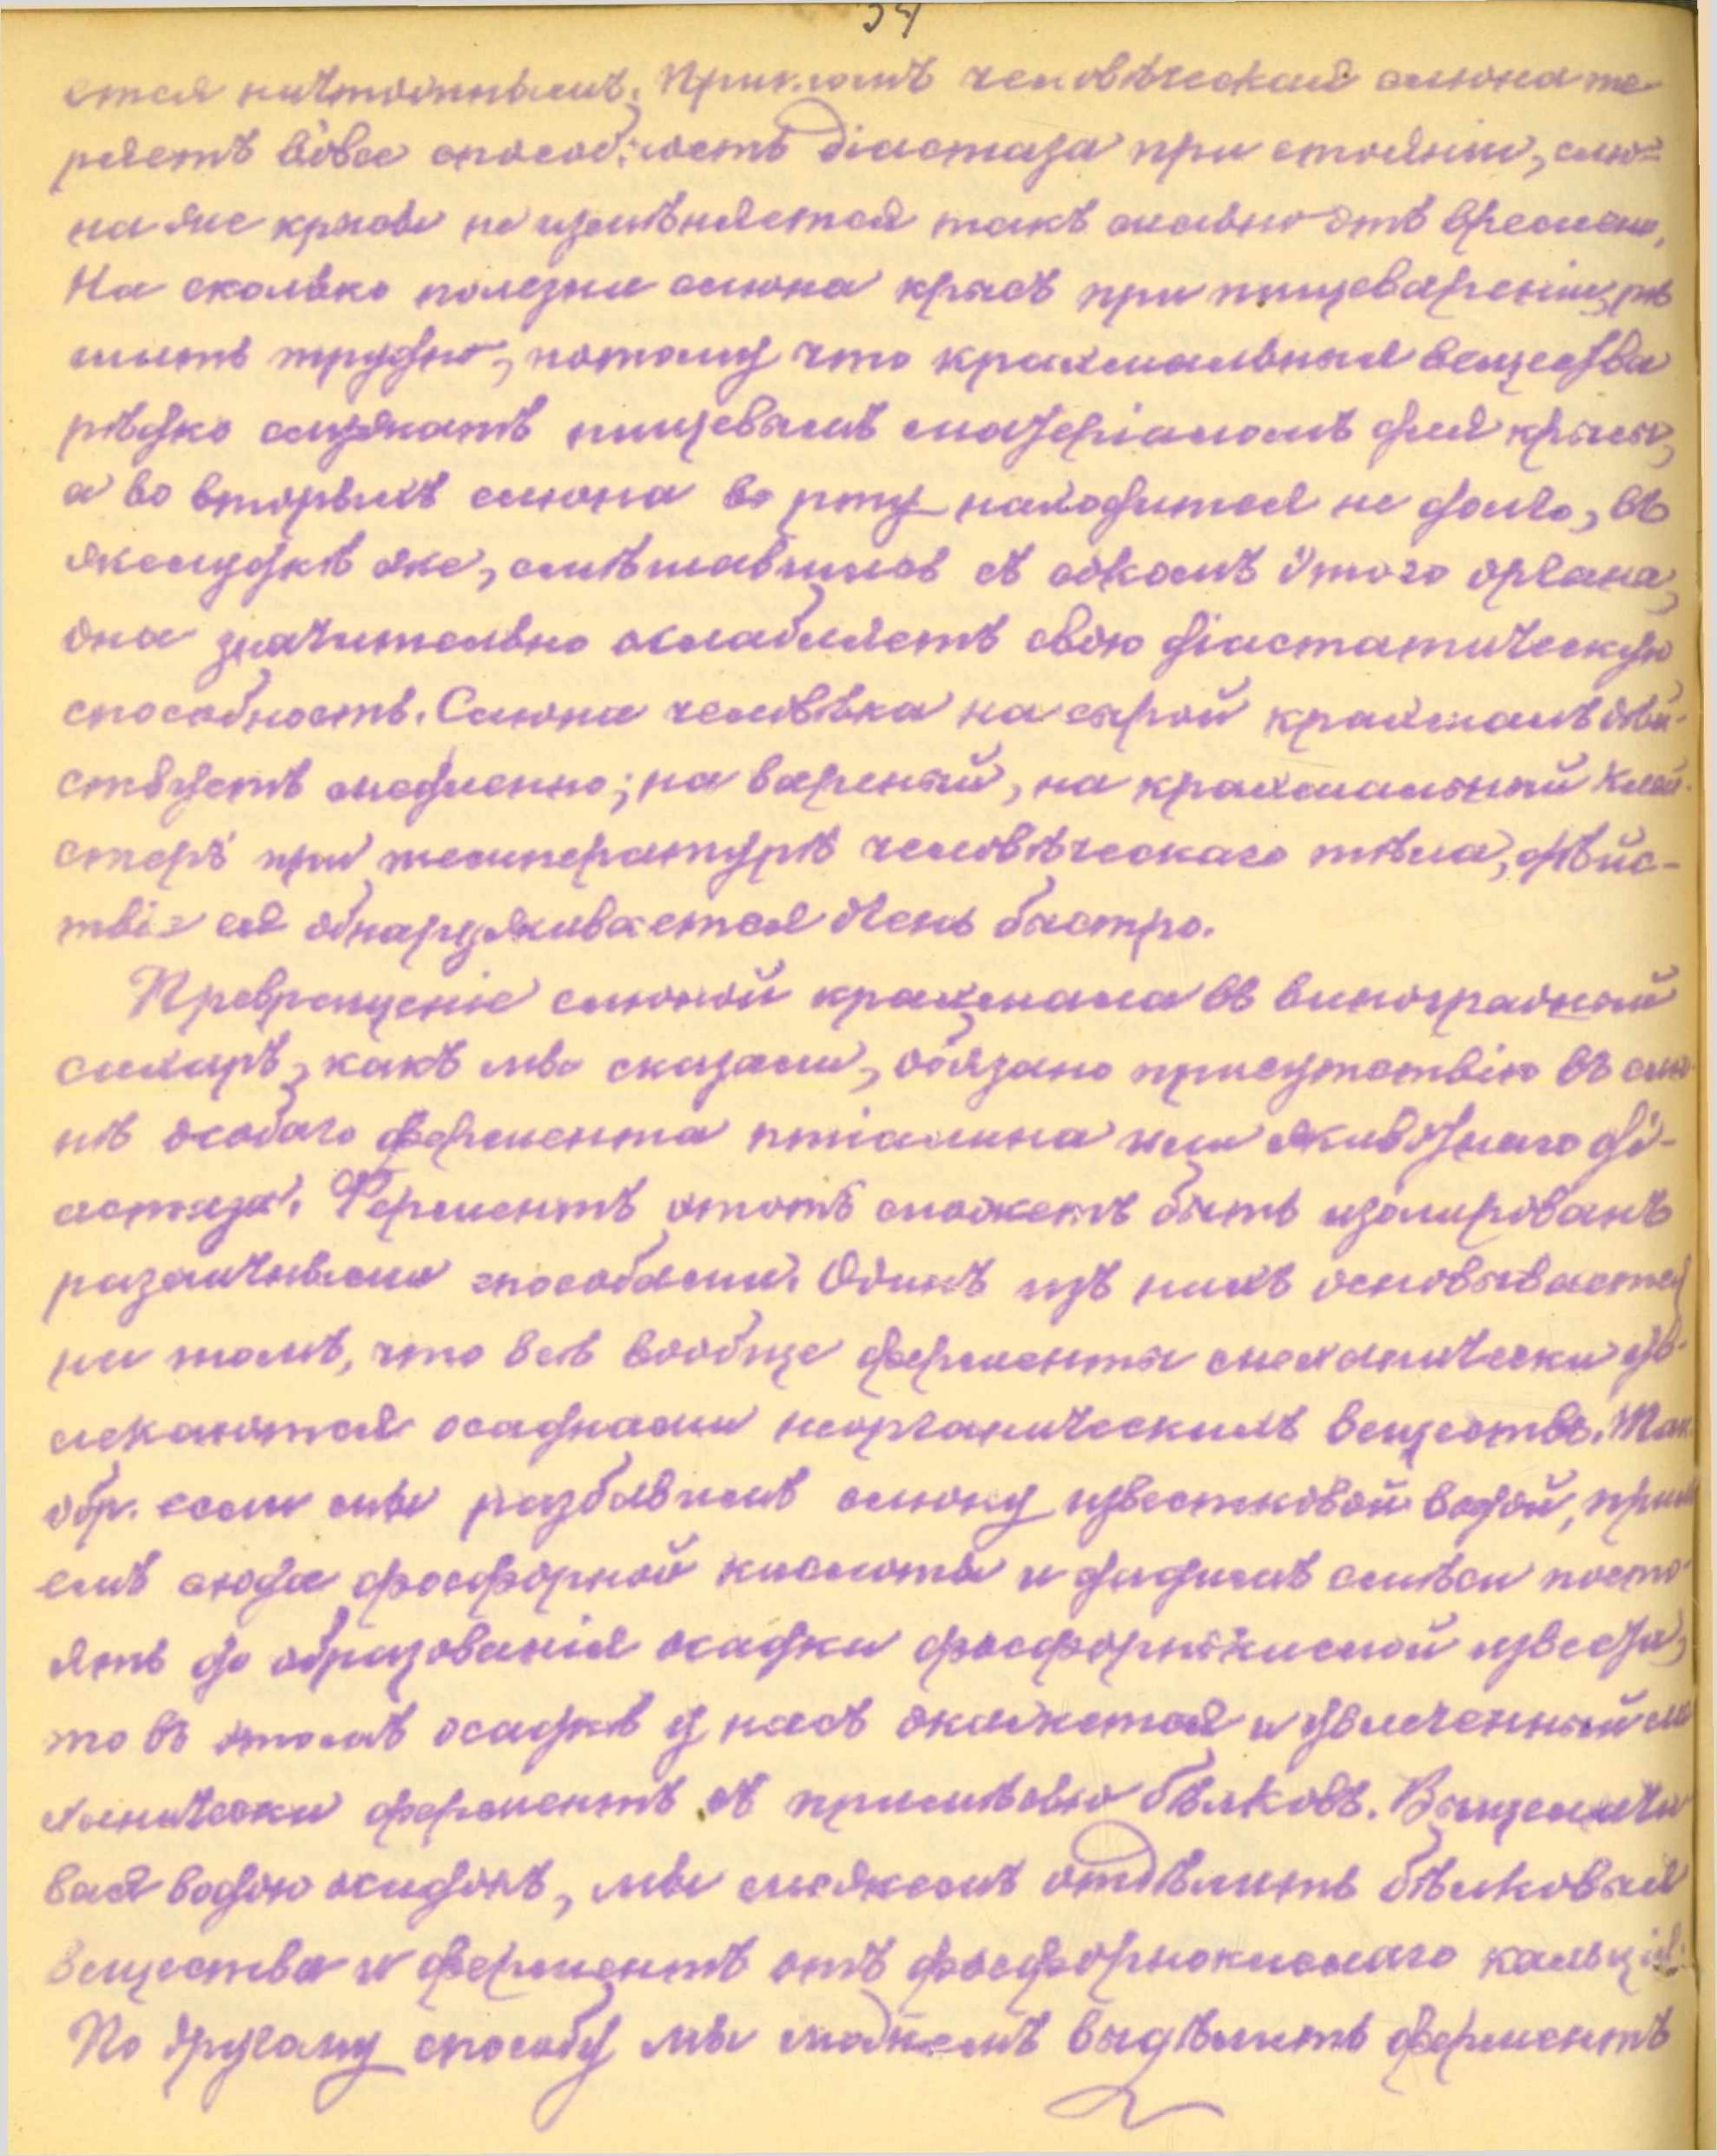 34
ется ничтожнымъ. Притомъ человѣческая слюна те-
ряетъ вовсе способность діастаза при стояніи, слю=
на же крысы не измѣняется такъ сильно отъ времени.
На сколько полезна слюна крысъ при пищевареніи, рѣ
шить трудно, потому что крахмальныя вещества
рѣдко служатъ пищевымъ матеріаломъ для крысы,
а во вторыхъ слюна во рту находится не долго, въ
желудкѣ же, смѣшавшись съ сокомъ этого органа,
она значительно ослабляетъ свою діастатическую
способность. Слюна человѣка на сырой крахмалъ дѣй-
ствуетъ медленно; на вареный, на крахмальный клей-
стеръ при температурѣ человѣческаго тѣла, дѣйс-
твіе ея обнаруживается очень быстро.
Превращеніе слюной крахмала въ виноградный
сахаръ, какъ мы сказали, обязано присутствію въ слю-
нѣ особаго фермента птіалина или животнаго ді-
астаза. Ферментъ этотъ можетъ быть изолированъ
различными способами. Одинъ изъ нихъ основывается
на томъ, что всѣ вообще ферменты механически ув-
лекаются осадками неорганическихъ веществъ. Так.
обр. если мы разбавимъ слюну известковой водой, прил
емъ сюда фосфорной кислоты и дадимъ смѣси посто-
ять до образованія осадка фосфорнокислой извести,
то въ этомъ осадкѣ у насъ окажется и увлеченный ме
ханически ферментъ съ примѣсью бѣлковъ. Выщелачи
вая водою осадокъ, мы можемъ отдѣлить бѣлковыя
вещества и ферментъ отъ фосфорнокислаго кальція.
По другому способу мы можемъ выдѣлить ферментъ